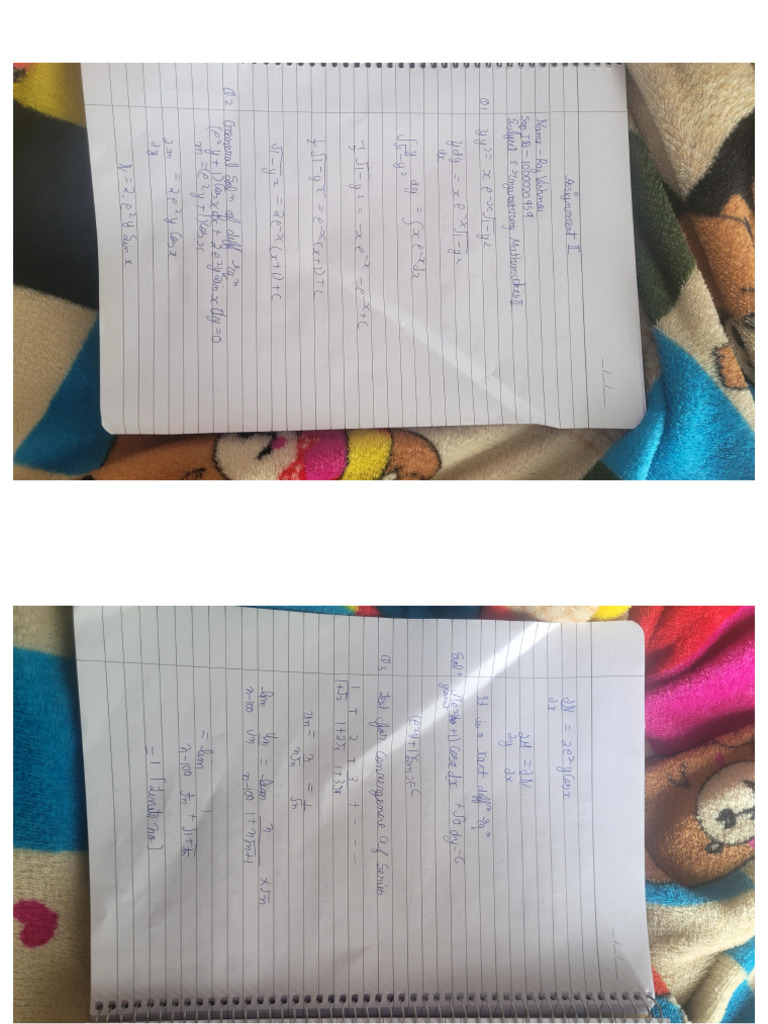 Assignment II
Name - Raj Vishnoi
Sap ID - 1000000454
Subject : Engineering Mathematics II
Q1 yy' = x e^-x √1-y²
y dy/dx = x e^-x √1-y²
∫ y/√1-y² dy = ∫ x e^-x dx
-1 √1-y² = -x e^-x - e^-x + C
+ √1-y² = e^-x (x+1) + C
√1-y² = 2e^-x (x+1) + C
Q2 General Solⁿ of diff eqⁿ
(e^2y + 1) cosx dx + 2e^2y sin x dy = 0
m = (e^2y + 1) cos x
∂m/∂y = 2e^2y cos x
N = 2 e^2y sin x
∂N/∂x = 2e^2y cosx
∂M/∂y = ∂N/∂x
It is a xact diffⁿ eqⁿ
Solⁿ ∫(e^2y + 1) cosx dx + ∫0 dy = C
(e^2y + 1) sin x = C
Q3 Test for Convergence of Series
1/1+√1 + 2/1+2√2 + 3/1+3√3 + - - -
Un = n/n√n = 1/√n
lim n→∞ Un/Vn = lim n→∞ n/1+n√n+1 × √n
= lim n→∞ 1/√n + √1+1/n
= 1 (finite no)